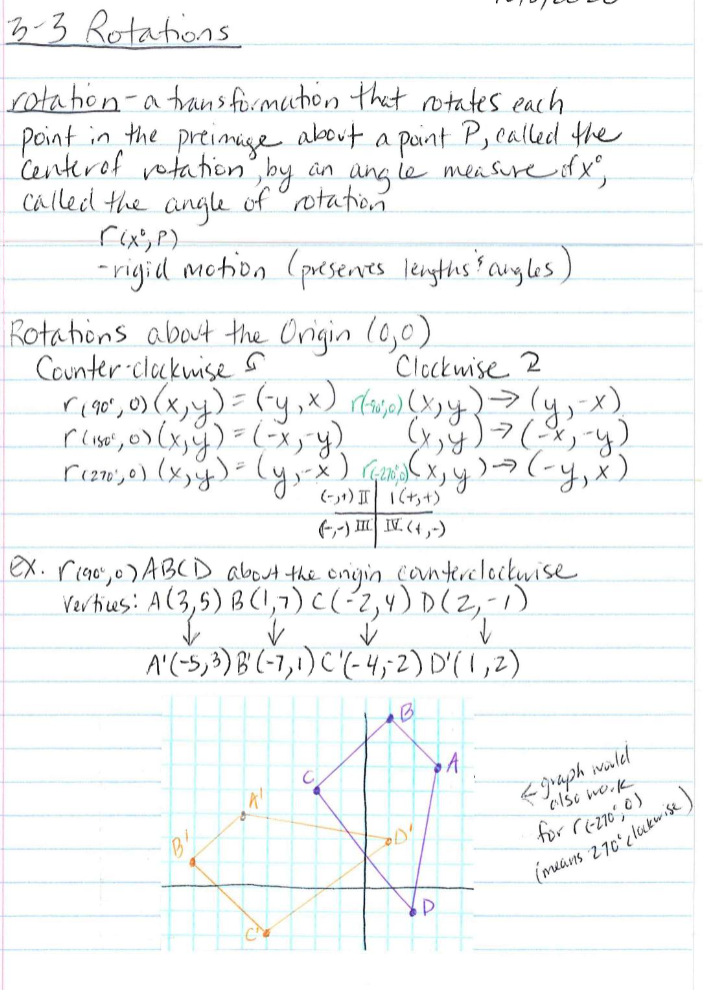 3-3 Rotations
rotation - a transformation that rotates each
point in the preimage about a point P, called the
center of rotation, by an angle measure of x°,
called the angle of rotation
r(x°, P)
- rigid motion (preserves lengths & angles)
Rotations about the Origin (0,0)
Counter-clockwise Clockwise
r(90°, 0) (x, y) = (-y, x) r(-90°, 0) (x, y) → (y, -x)
r(180°, 0) (x, y) = (-x, -y) (x, y) → (-x, -y)
r(270°, 0) (x, y) = (y, -x) r(-270°, 0) (x, y) → (-y, x)
(-,+) II I (+,+)
(-,-) III IV (+,-)
ex. r(90°, 0) ABCD about the origin counterclockwise
Vertices: A(3,5) B(1,7) C(-2,4) D(2,-1)
↓ ↓ ↓ ↓
A'(-5,3) B'(-7,1) C'(-4,-2) D'(1,2)
B
A
C
A'
D'
B'
D
C'
← graph would
also work
for r(-270°, 0)
(means 270° clockwise)